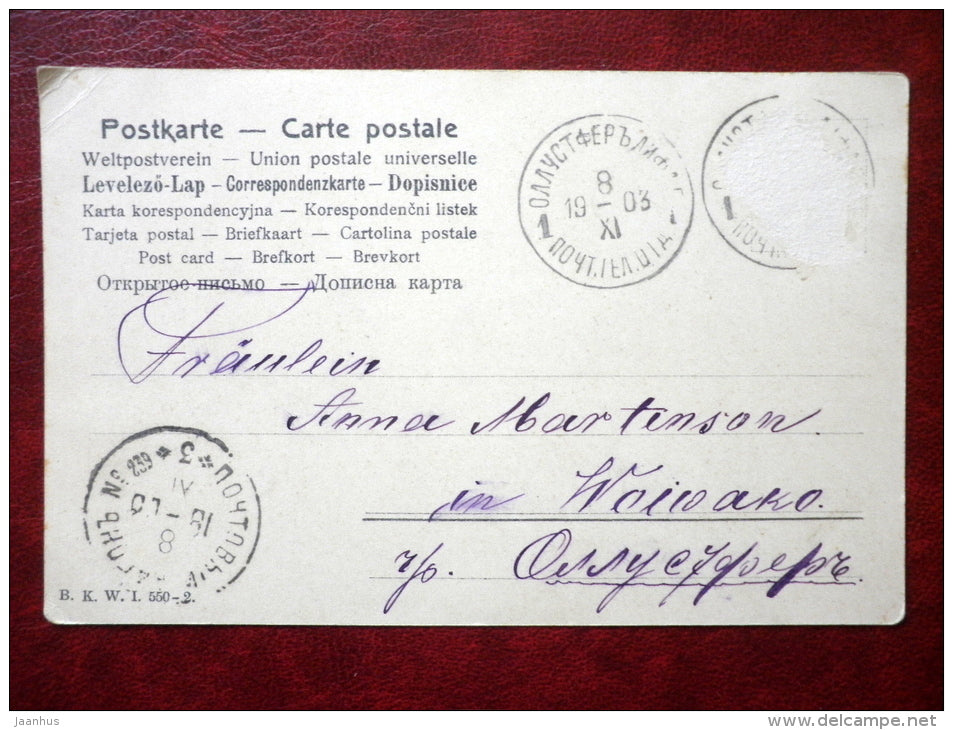 Postkarte — Carte postale
Weltpostverein — Union postale universelle
Levelező-Lap – Correspondenzkarte – Dopisnice
Karta korespondencyjna – Korespondenčni listek
Tarjeta postal – Briefkaart – Cartolina postale
Post card – Brefkort – Brevkort
Открытое письмо — Дописна карта
ОЛЛУСТФЕРЪ
8
19 – 03
XI
1
ПОЧТ. ТЕЛ.
1
Fräulein
Anna Martenson.
in Woiwako.
ч/р. Оллустферъ.
ПОЧТОВЫЙ ВАГОНЪ № 239 * 3 *
8
B. K. W. I. 550-2.
jaanhus
www.delcampe.net